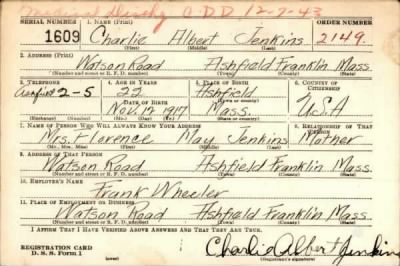 C.D.D. 12-7-43
SERIAL NUMBER 1. NAME (Print) ORDER NUMBER
1609 Charlie Albert Jenkins 2149.
(First) (Middle) (Last)
2. ADDRESS (Print)
Watson Road Ashfield Franklin Mass.
(Number and street or R. F. D. number) (Town) (County) (State)
3. TELEPHONE 4. AGE IN YEARS 5. PLACE OF BIRTH 6. COUNTRY OF CITIZENSHIP
Ashfield 2-5 22 Ashfield
(Town or county)
DATE OF BIRTH
Nov. 12 1917 Mass. U.S.A
(Exchange) (Number) (Mo.) (Day) (Yr.) (State or country)
7. NAME OF PERSON WHO WILL ALWAYS KNOW YOUR ADDRESS 8. RELATIONSHIP OF THAT PERSON
Mrs. Florence May Jenkins Mother
(Mr., Mrs., Miss) (First) (Middle) (Last)
9. ADDRESS OF THAT PERSON
Watson Road Ashfield Franklin Mass.
(Number and street or R. F. D. number) (Town) (County) (State)
10. EMPLOYER'S NAME
Frank Wheeler
11. PLACE OF EMPLOYMENT OR BUSINESS
Watson Road Ashfield Franklin Mass.
(Number and street or R. F. D. number) (Town) (County) (State)
I AFFIRM THAT I HAVE VERIFIED ABOVE ANSWERS AND THAT THEY ARE TRUE.
REGISTRATION CARD
D. S. S. Form 1 Charlie Albert Jenkins
(Registrant's signature)